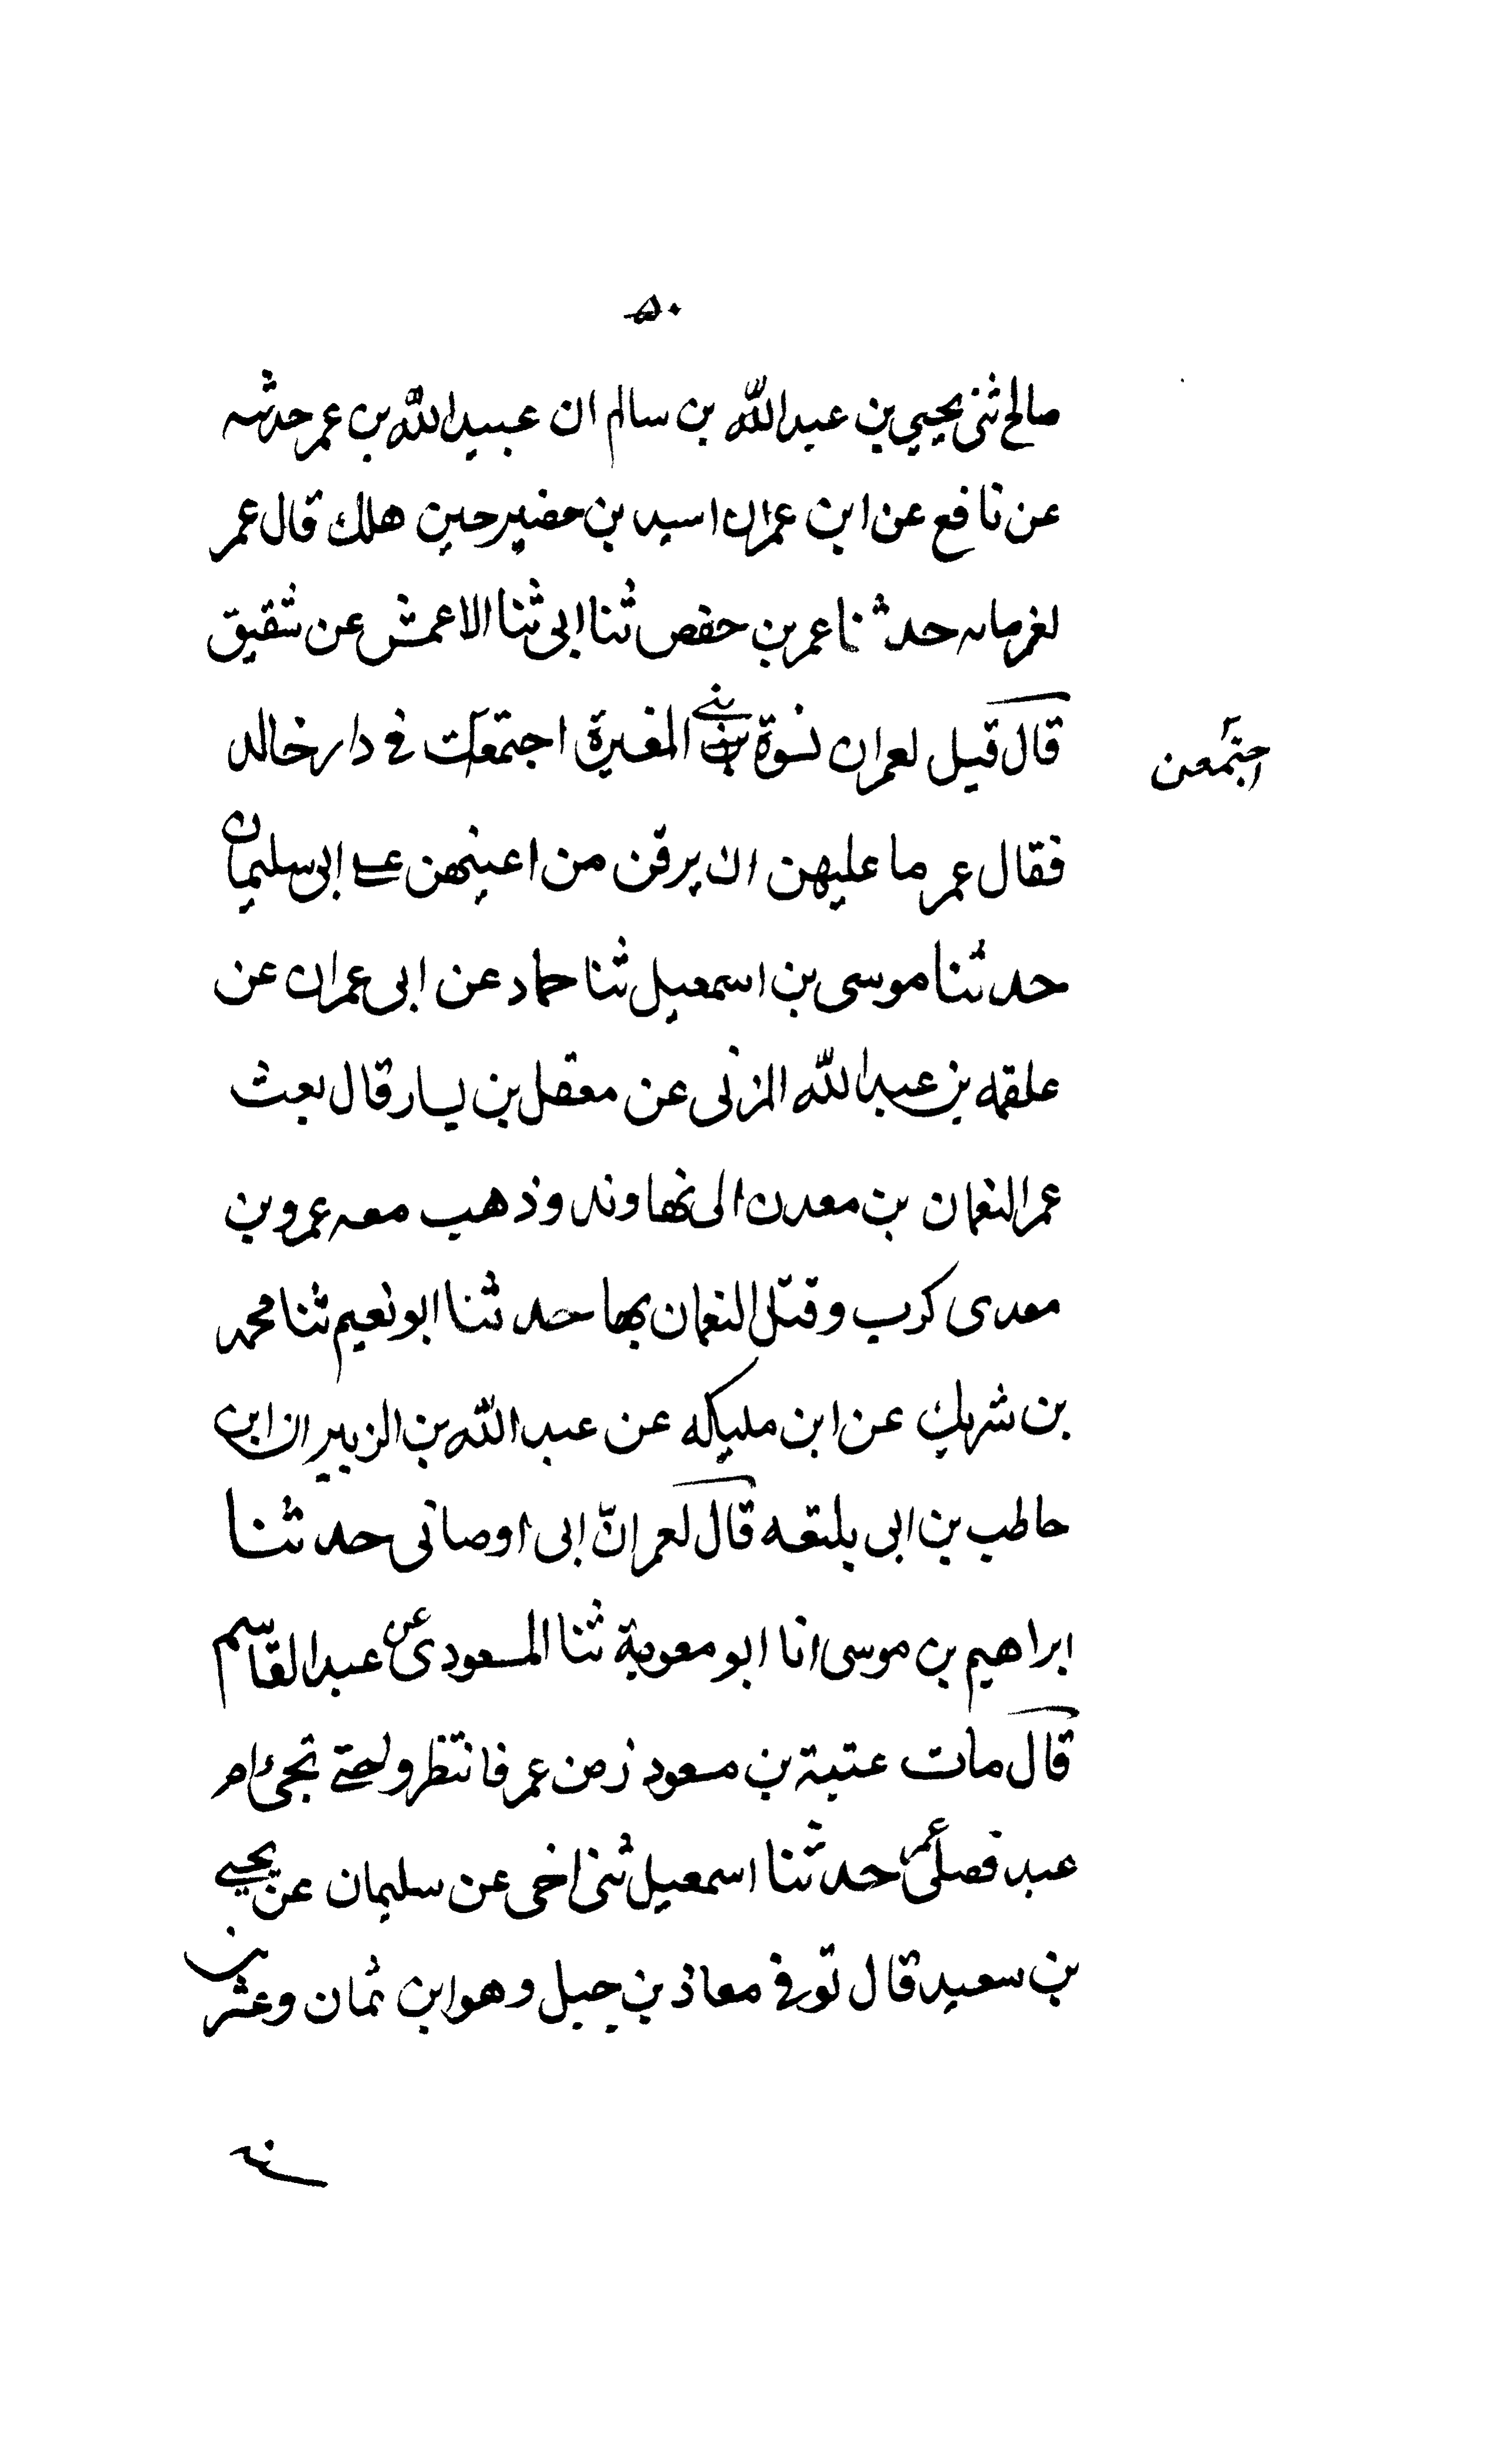 ٥٠
صالح ثنى يحيى بن عبد الله بن سالم ان عبيد الله بن عمر حدثه
عن نافع عن ابن عمر ان اسيد بن حضير حين هلك قال عمر
لغرمائه حدثنا عمر بن حفص ثنا ابى ثنا الاعمش عن شقيق
قال قيل لعمر ان نسوة بنى المغيرة اجتمعت فى دار خالد
اجتمعن
فقال عمر ما عليهن ان يرقن من اعينهن على ابى سليمان
حدثنا موسى بن اسمعيل ثنا حماد عن ابى عمران عن
علقمه بن عبد الله المزنى عن معقل بن يسار قال بعث
عمر النعمان بن معدن الى نهاوند وذهب معه عمرو بن
معدى كرب وقتل النعمان بها حدثنا ابو نعيم ثنا محمد
بن شريك عن ابن مليكه عن عبد الله بن الزبير ان ابن
حاطب بن ابى بلتعه قال لعمر انّ ابى اوصانى حدثنا
ابراهيم بن موسى انا ابو معوية ثنا المسعودى عن عبد القاسم
قال مات عتبة بن مسعود زمن عمر فانتظروا حتى تجئ ام
عبد فصلى عمر حدثنا اسمعيل ثنى اخى عن سليمان عن يحيى
بن سعيد قال توفى معاذ بن جبل وهو ابن ثمان وعشرين